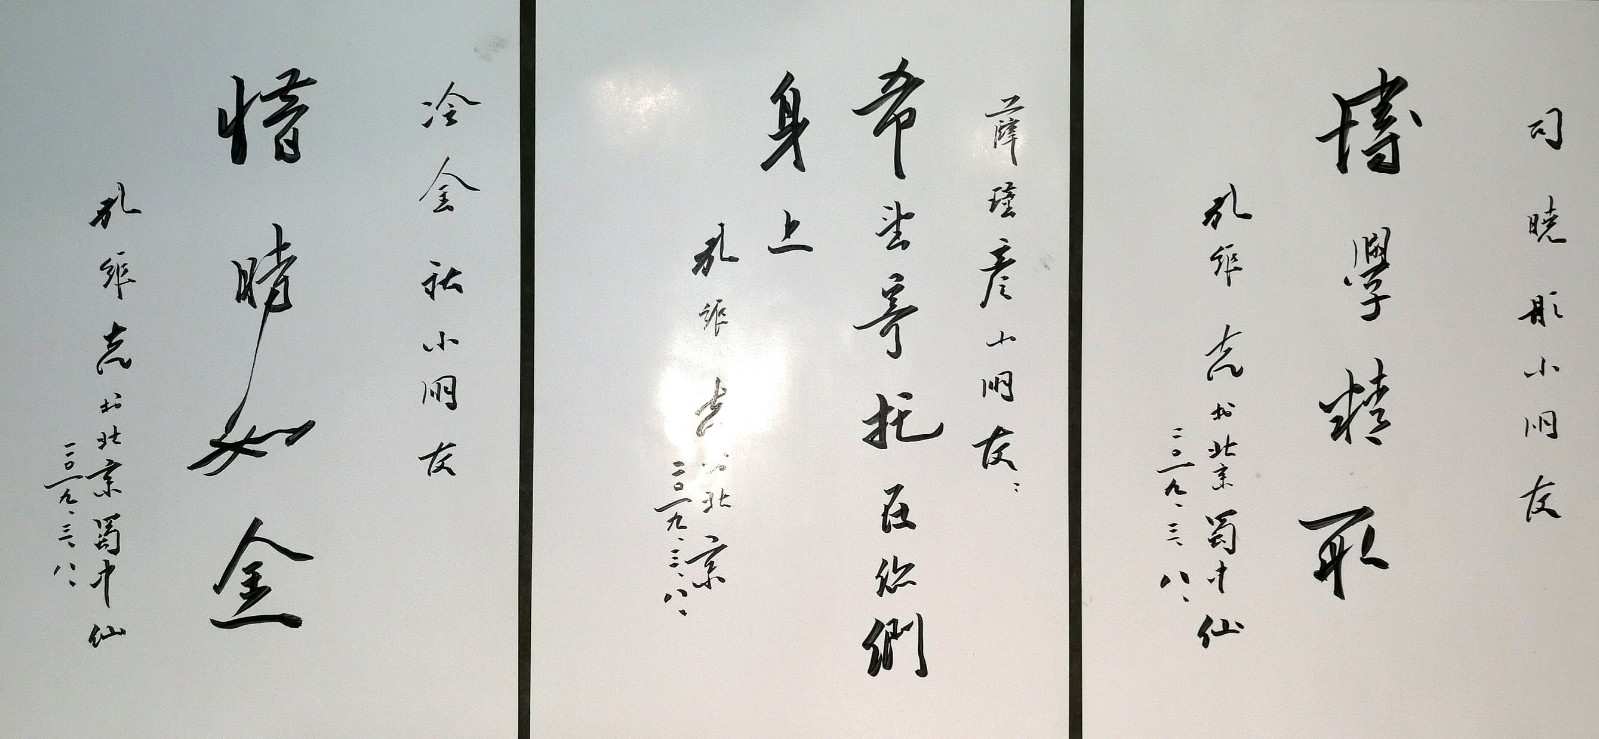 司曉彤小朋友
博學精取
孔維克於北京蜀中仙
二〇一九.三.八.
薛瑾彥小朋友：
希望寄托在您們
身上
孔維克於北京
二〇一九.三.八.
冷金社小朋友
惜時如金
孔維克於北京蜀中仙
二〇一九.三.八.